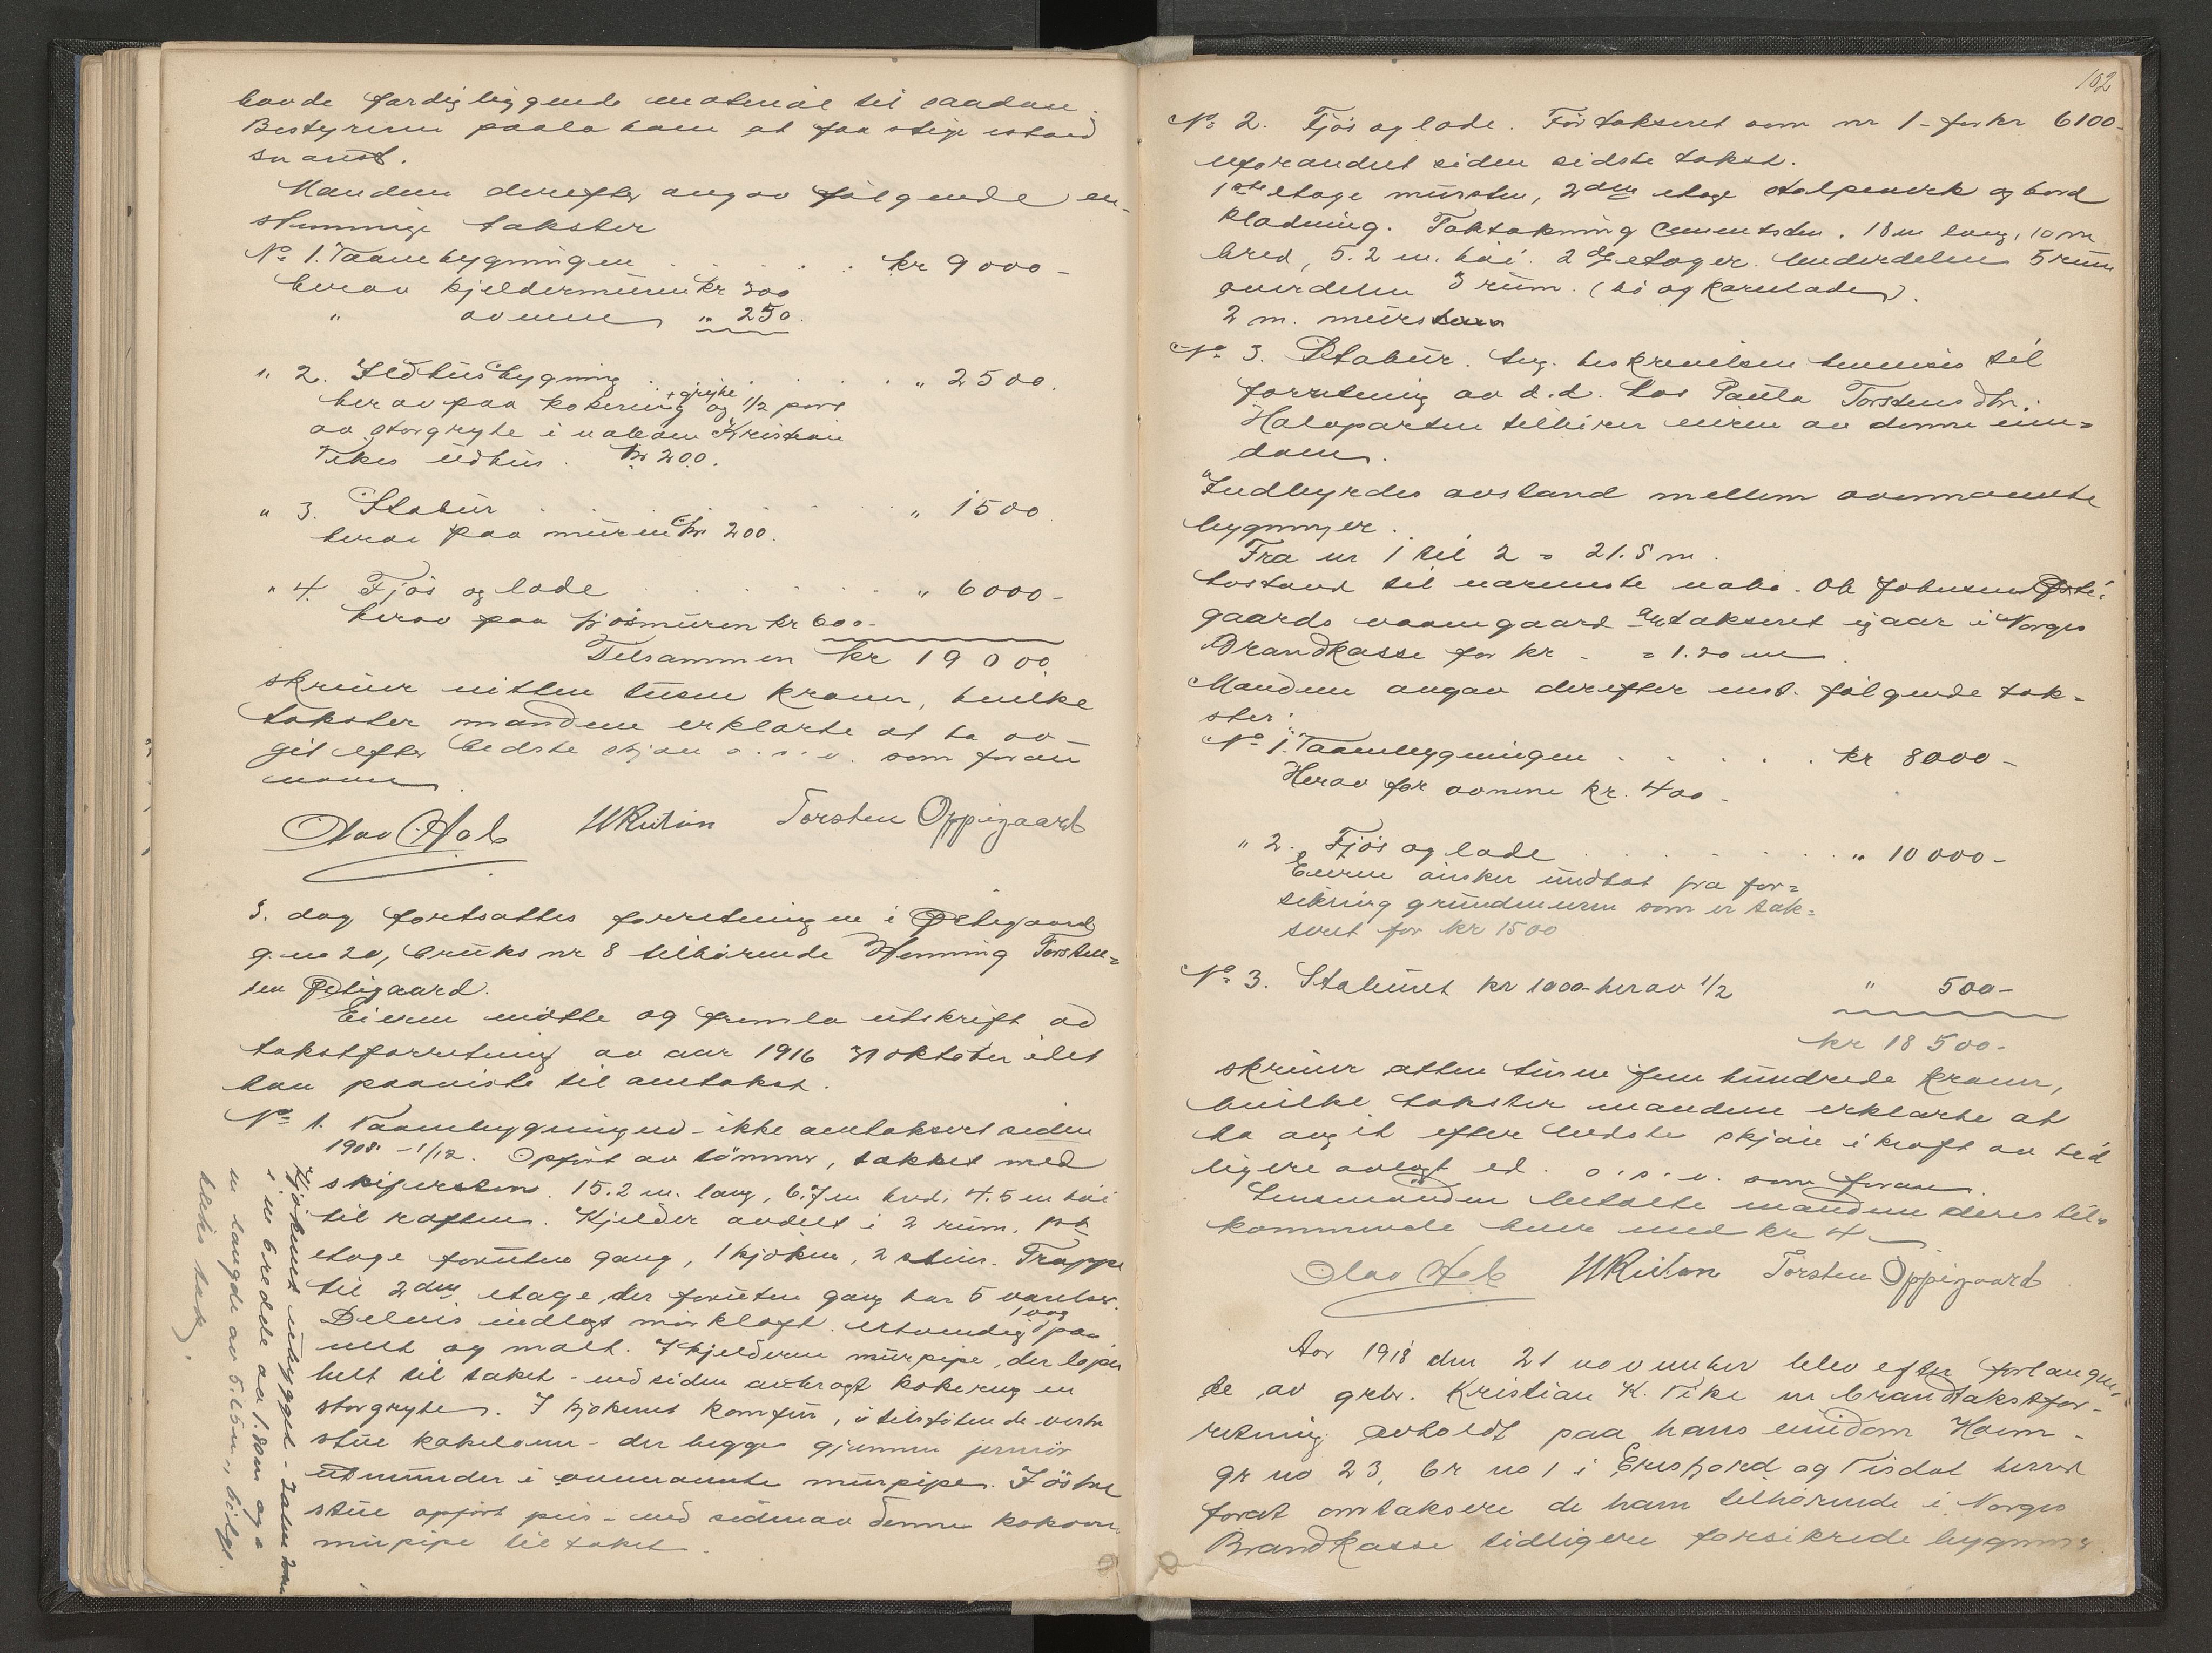 havde færdigliggende material til saadan.
Bestyreren paala ham at faa stige istand
snarest.
Mændene derefter angav følgende en-
stemmige takster
No 1. Vaanebygningen . . . . kr 9000 -
herav kjeldermuren kr 300
" ovnene " 250.
" 2. Ildhusbygning . . . . " 2500.
herav paa kokering + gryte og 1/2 part
av storgryte i naboen Kristian
Vikes ildhus. kr 200.
" 3. Stabur . . . . " 1500
herav paa muren kr 200.
" 4. Fjøs og lade . . . . " 6000 -
herav paa fjøsmuren kr 600 -
Tilsammen kr 19000
skriver nitten tusen kroner, hvilke
takster mændene erklærte at ha av-
git efter bedste skjøn o.s.v. som foran
nævn
Olav Hole WRulon Torsten Oppigaard
S. dag fortsattes forretningen i Østigaard
g. no 20, bruks nr 8 tilhørende Henning Torsten-
sen Østigaard.
Eieren møtte og fremla utskrift av
takstforretning av aar 1916 31 oktober idet
han paaviste til omtakst.
No 1. Vaanebygningen - ikke omtaksert siden
1908 - 1/12. Opført av tømmer, tækket med
skifersten. 15.2 m. lang, 6.7 m bred, 4.5 m høi
til raften. Kjelder avdelt i 2 rum. 1ste
etage foruten gang, 1 kjøken, 2 stuer. Trappe
til 2den etage, der foruten gang har 5 værelser.
Delvis indlagt mørkloft. Utvendig 1 væg paa
nett og malt. I kjelderen murpipe, der løper
helt til taket - ved siden anbragt kokering en
storgryte. I kjøkenet komfur, i tilstøtende vestre
stue kakelovn - der begge gjennem jernrør
utmunder i ovennævnte murpipe. I østre
stue opført peis - ved siden av denne kokovn
murpipe til taket.
Kjøkenet utbygget - Ialen 2 om
i m bredde av 1.80 m og a
m længde av 5.15 m, bølge
bliks tak.
102
No 2. Fjøs og lade. Før taksert som nr 1 - for kr 6100 -
uforandret siden sidste takst.
1ste etage mursten, 2den etage stolpeverk og bord
klædning. Taktækning cementsten. 18 m lang, 10 m
bred, 5.2 m. høi. 2 etager. Underdelen 5 rum
overdelen 3 rum. (hø og kornlader).
2 m. mursten
No 3. Stabur. Ang. beskrivelsen henvises til
forretning av d.d. hos Paula Torstensdtr.
Halvparten tilhører eieren av denne eien-
dom.
Indbyrdes avstand mellem ovennævnte
bygninger.
Fra nr 1 til 2 = 21.5 m.
Avstand til nærmeste nabo. Ole Johnsen Østi-
gaards vaanegaard - taksert igaar i Norges
Brandkasse for kr - = 1.20 m
Mændene angav derefter enst. følgende tak-
ster:
No 1. Vaanebygningen . . . . . kr 8000 -
Herav for ovnene kr. 400 -
" 2. Fjøs og lade . . . . " 10000 -
Eieren ønsker undtat fra for-
sikring grundmuren som er tak-
seret for kr 1500
No 3. Staburet kr 1000 - herav 1/2 " 500 -
kr 18500 -
skriver atten tusen fem hundrede kroner,
hvilke takster mændene erklærte at
ha avgit efter bedste skjøn i kraft av tid
ligere avlagt ed. o.s.v. som foran.
Lensmanden betalte mændene deres til-
kommende hver med kr 4 -
Olav Hole WRulon Torsten Oppigaard
Aar 1918 den 21 november blev efter forlangen-
de av grbr. Kristian K. Vike en brandtakstfor-
retning avholdt paa hans eiendom Haem -
gr no 23, br no 1 i Eresfjord og Visdal herred
forat omtaksere de ham tilhørende i Norges
Brandkasse tidligere forsikrede bygninger